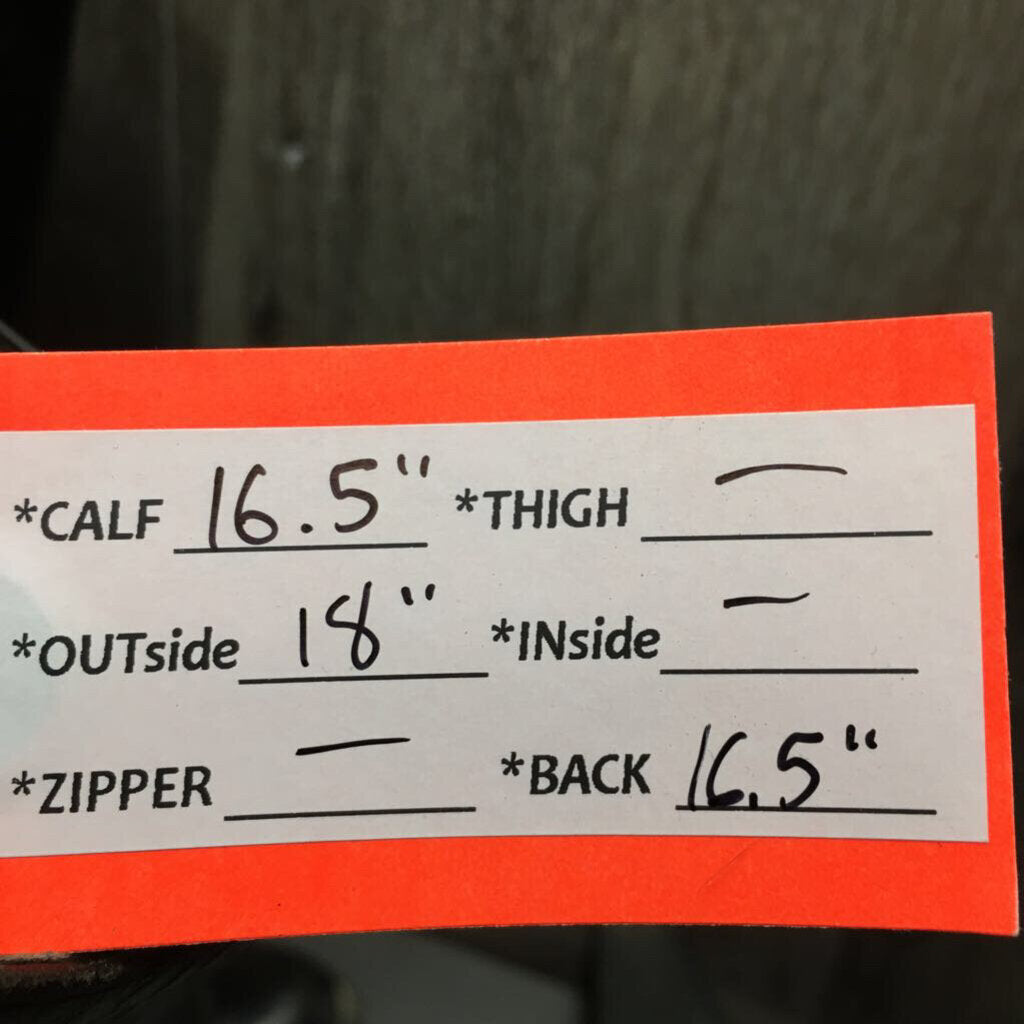 *CALF 16.5" *THIGH —
*OUTside 18" *INside —
*ZIPPER — *BACK 16.5"